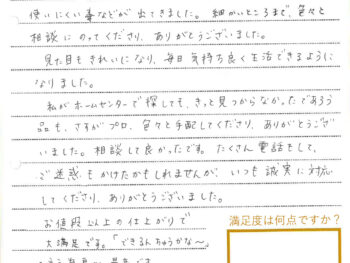 使いにくい事などが出てきました。細かいところまで、色々と
相談にのってくださり、ありがとうございました。
見た目もきれいになり、毎日気持ち良く生活できるように
なりました。
私がホームセンターで探しても、きっと見つからなかったであろう
品も、さすがプロ、色々と手配してくださり、ありがとうござ
いました。相談して良かったです。たくさん電話もして、
ご迷惑もかけたかもしれませんが、いつも誠実に対応
してくださり、ありがとうございました。
お値段以上の仕上がりで
大満足です。「できるんちゅうかな〜」
満足度は何点ですか?